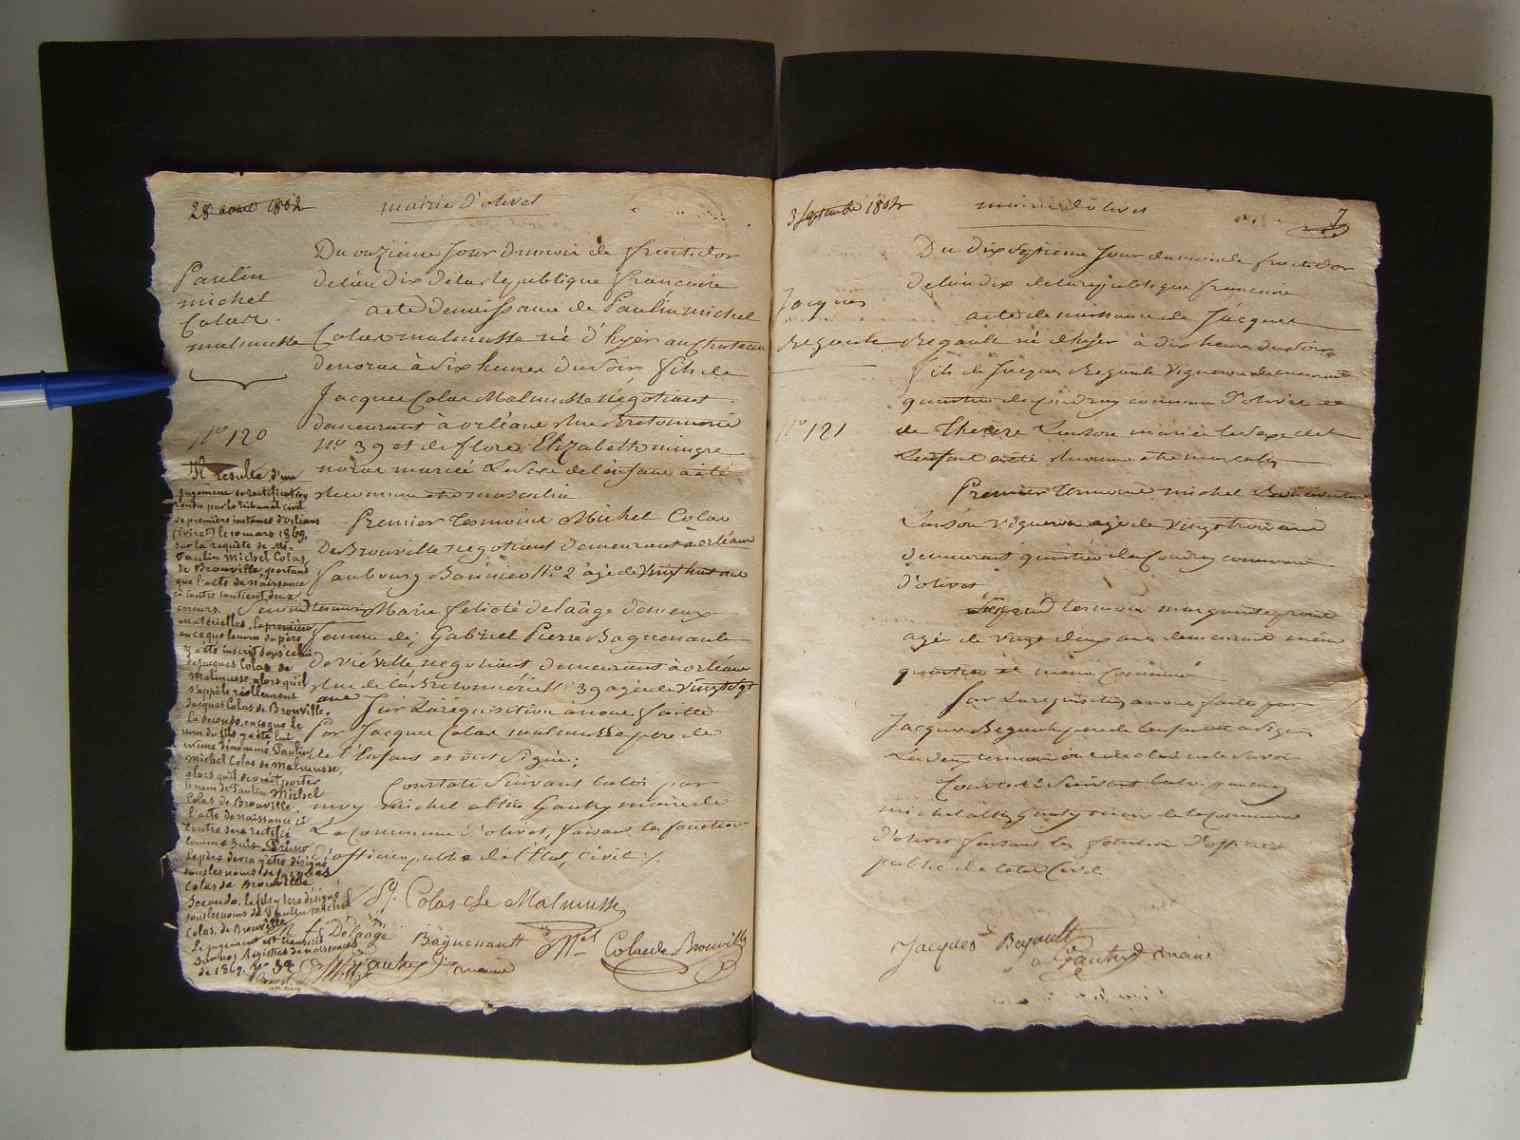 28 aout 1802
mairie d'olivet
Paulin
michel
Colas
malmusse
N.o 120
Du onzieme Jour du mois de fructidor
de l'an dix de la republique francoise
acte de naissance de Paulin michel
Colas malmusse né d'hyer au chateau
de noras à six heures du soir fils de
Jacques Colas Malmusse négotiant
demeurant à orléans Rue Bretonnerie
N.o 39 et de flore Elizabeth mingre
noras mariée Le sexe de l'enfant a été
Reconnu etre masculin
Premier Temoins Michel Colas
De Brouville negotiant demeurant à orléans
faubourg Bannier N.o 2 agé de vingt huit ans
Second temoin Marie felicité delaâge demeux
femme de Gabriel Pierre Baguenault
de viéville negotiant demeurant à orléans
Rue de la Bretonnerie N.o 39 agée de vingt sept
ans Sur La requisition à nous faitte
Par Jacques Colas malmusse pere de
de l'Enfant et ont signé;
Constaté Suivant la loi par
moy michel Gaudry maire de
La commune d'olivet, faisant les fonctions
d'officier public de l'Etat Civil ;.
Colas de Malmusse
f. Delaage Baguenault
Colas de Brouville
Gaudry maire
Il résulte d'un
jugement en rectification
rendu par le tribunal civil
de première instance d'Orléans
(Loiret) le 10 mars 1869,
sur la requête de Mr.
Paulin Michel Colas
de Brouville, portant
que l'acte de naissance
ci contre contient deux
erreurs
matérielles. La première
en ce que le nom du père
y a été inscrit sous celui
de Jacques Colas de
Malmusse, alors qu'il
s'appelle réellement
Jacques Colas de Brouville.
La seconde, en ce que le
nom du fils y a été lui
même dénommé Paulin
Michel Colas de Malmusse,
alors qu'il devrait porter
le nom de Paulin Michel
Colas de Brouville.
L'acte de naissance ci
contre sera rectifié
comme suit. Primo
le père devra y être désigné
sous les noms de Jacques
Colas de Brouville
Secundo, le fils y sera désigné
sous les noms de Paulin Michel
Colas, de Brouville
Le jugement est transcrit
sur les registres de naissances
de 1869. No 34
3 Septembre 1802
mairie d'olivet
7
Jacques
Regault
N.o 121
Du dix septieme Jour du mois de fructidor
de l'an dix de la republique francoise
acte de naissance de Jacques
Regault né d'hyer à dix heures du soir
fils de Jacques Regault Vigneron demeurant
quartier du Coudray commune d'olivet et
de Therese Lanson mariée le sexe del
L'enfant a été Reconnu etre masculin
Premier Temoin michel
Lanson vigneron agé de vingt trois ans
demeurant quartier du Coudray commune
d'olivet
Second temoin marguerite
agée de vingt deux ans demeurant même
quartier et même Commune
Sur La requisition a nous faite par
Jacques Regault pere de l'enfant et a Signé
Les deux temoins ont declaré ne le savoir
Constaté Suivant la loi par moy
michel Gaudry maire de la Commune
d'olivet faisant les fonctions d'officier
public de l'etat Civil
Jacques Regault
Gaudry maire